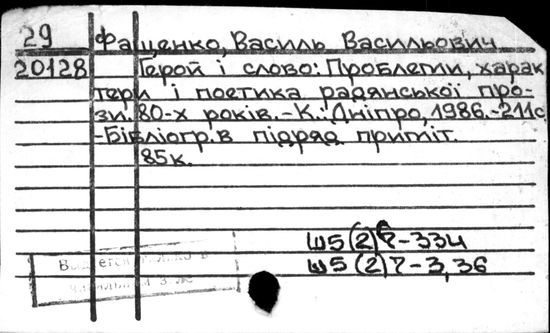 29 Фащенко, Василь Васильович
20128 Герой і слово: Проблеми, харак
тери і поетика радянської про-
зи 80-х років.-К.: Дніпро, 1986.-211с
-Бібліогр. в підряд приміт.
85к.
Ш5(2)7-334
Ш5(2)7-3,36